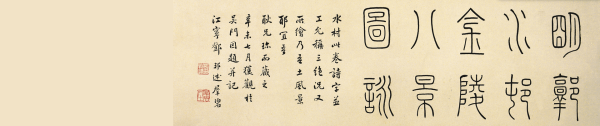 明郭
水邨
金陵
八景
圖詠
水村此卷詩字並
工允稱三絕況又
所繪乃吾土風景
耶宜吾
猷兄珍而藏之
辛未七月獲觀於
吳門因題并記
江寧鄧邦述羣碧